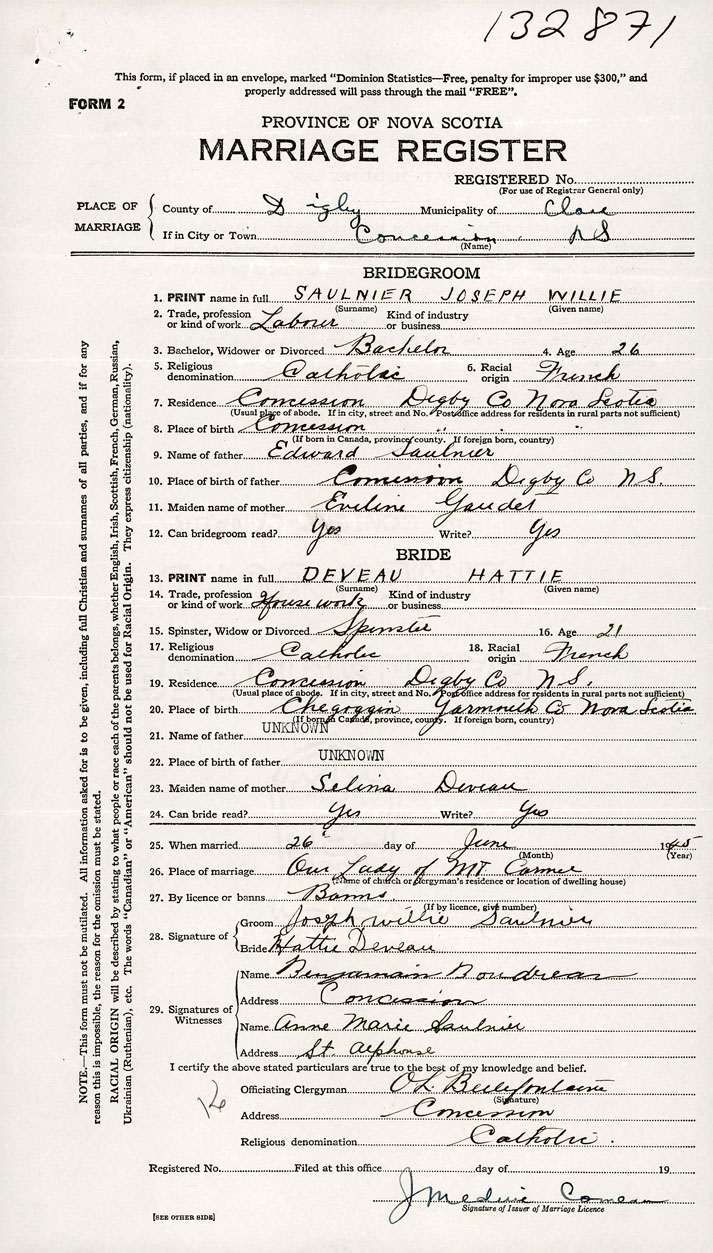 132871
This form, if placed in an envelope, marked "Dominion Statistics—Free, penalty for improper use $300," and
properly addressed will pass through the mail "FREE".
FORM 2
PROVINCE OF NOVA SCOTIA
MARRIAGE REGISTER
REGISTERED No.
(For use of Registrar General only)
PLACE OF MARRIAGE
County of Digby Municipality of Clare
If in City or Town Concession NS
(Name)
BRIDEGROOM
1. PRINT name in full SAULNIER JOSEPH WILLIE
(Surname) (Given name)
2. Trade, profession or kind of work Labour Kind of industry or business
3. Bachelor, Widower or Divorced Bachelor 4. Age 26
5. Religious denomination Catholic 6. Racial origin French
7. Residence Concession Digby Co Nova Scotia
(Usual place of abode. If in city, street and No. Postoffice address for residents in rural parts not sufficient)
8. Place of birth Concession " " "
(If born in Canada, province, county. If foreign born, country)
9. Name of father Edward Saulnier
10. Place of birth of father Concession Digby Co N.S.
11. Maiden name of mother Eveline Gaudet
12. Can bridegroom read? Yes Write? Yes
BRIDE
13. PRINT name in full DEVEAU HATTIE
(Surname) (Given name)
14. Trade, profession or kind of work House work Kind of industry or business
15. Spinster, Widow or Divorced Spinster 16. Age 21
17. Religious denomination Catholic 18. Racial origin French
19. Residence Concession Digby Co N.S.
(Usual place of abode. If in city, street and No. Postoffice address for residents in rural parts not sufficient)
20. Place of birth Chegoggin Yarmouth Co Nova Scotia
(If born in Canada, province, county. If foreign born, country)
21. Name of father UNKNOWN
22. Place of birth of father UNKNOWN
23. Maiden name of mother Selina Deveau
24. Can bride read? Yes Write? Yes
25. When married 26 day of June 1945
(Month) (Year)
26. Place of marriage Our Lady of Mt Carmel
(Name of church or clergyman's residence or location of dwelling house)
27. By licence or banns Banns
(If by licence, give number)
28. Signature of
Groom Joseph Willie Saulnier
Bride Hattie Deveau
29. Signatures of Witnesses
Name Benjamain Boudreau
Address Concession
Name Anne Marie Saulnier
Address St. Alphonse
I certify the above stated particulars are true to the best of my knowledge and belief.
Officiating Clergyman Bellefontaine
(Signature)
Address Concession
Religious denomination Catholic.
Registered No. Filed at this office day of 19
J Medric Comeau
Signature of Issuer of Marriage Licence
[SEE OTHER SIDE]
NOTE.—This form must not be mutilated. All information asked for is to be given, including full Christian and surnames of all parties, and if for any
reason this is impossible, the reason for the omission must be stated.
RACIAL ORIGIN will be described by stating to what people or race each of the parents belongs, whether English, Irish, Scottish, French, German, Russian,
Ukrainian (Ruthenian), etc. The words "Canadian" or "American" should not be used for Racial Origin. They express citizenship (nationality).